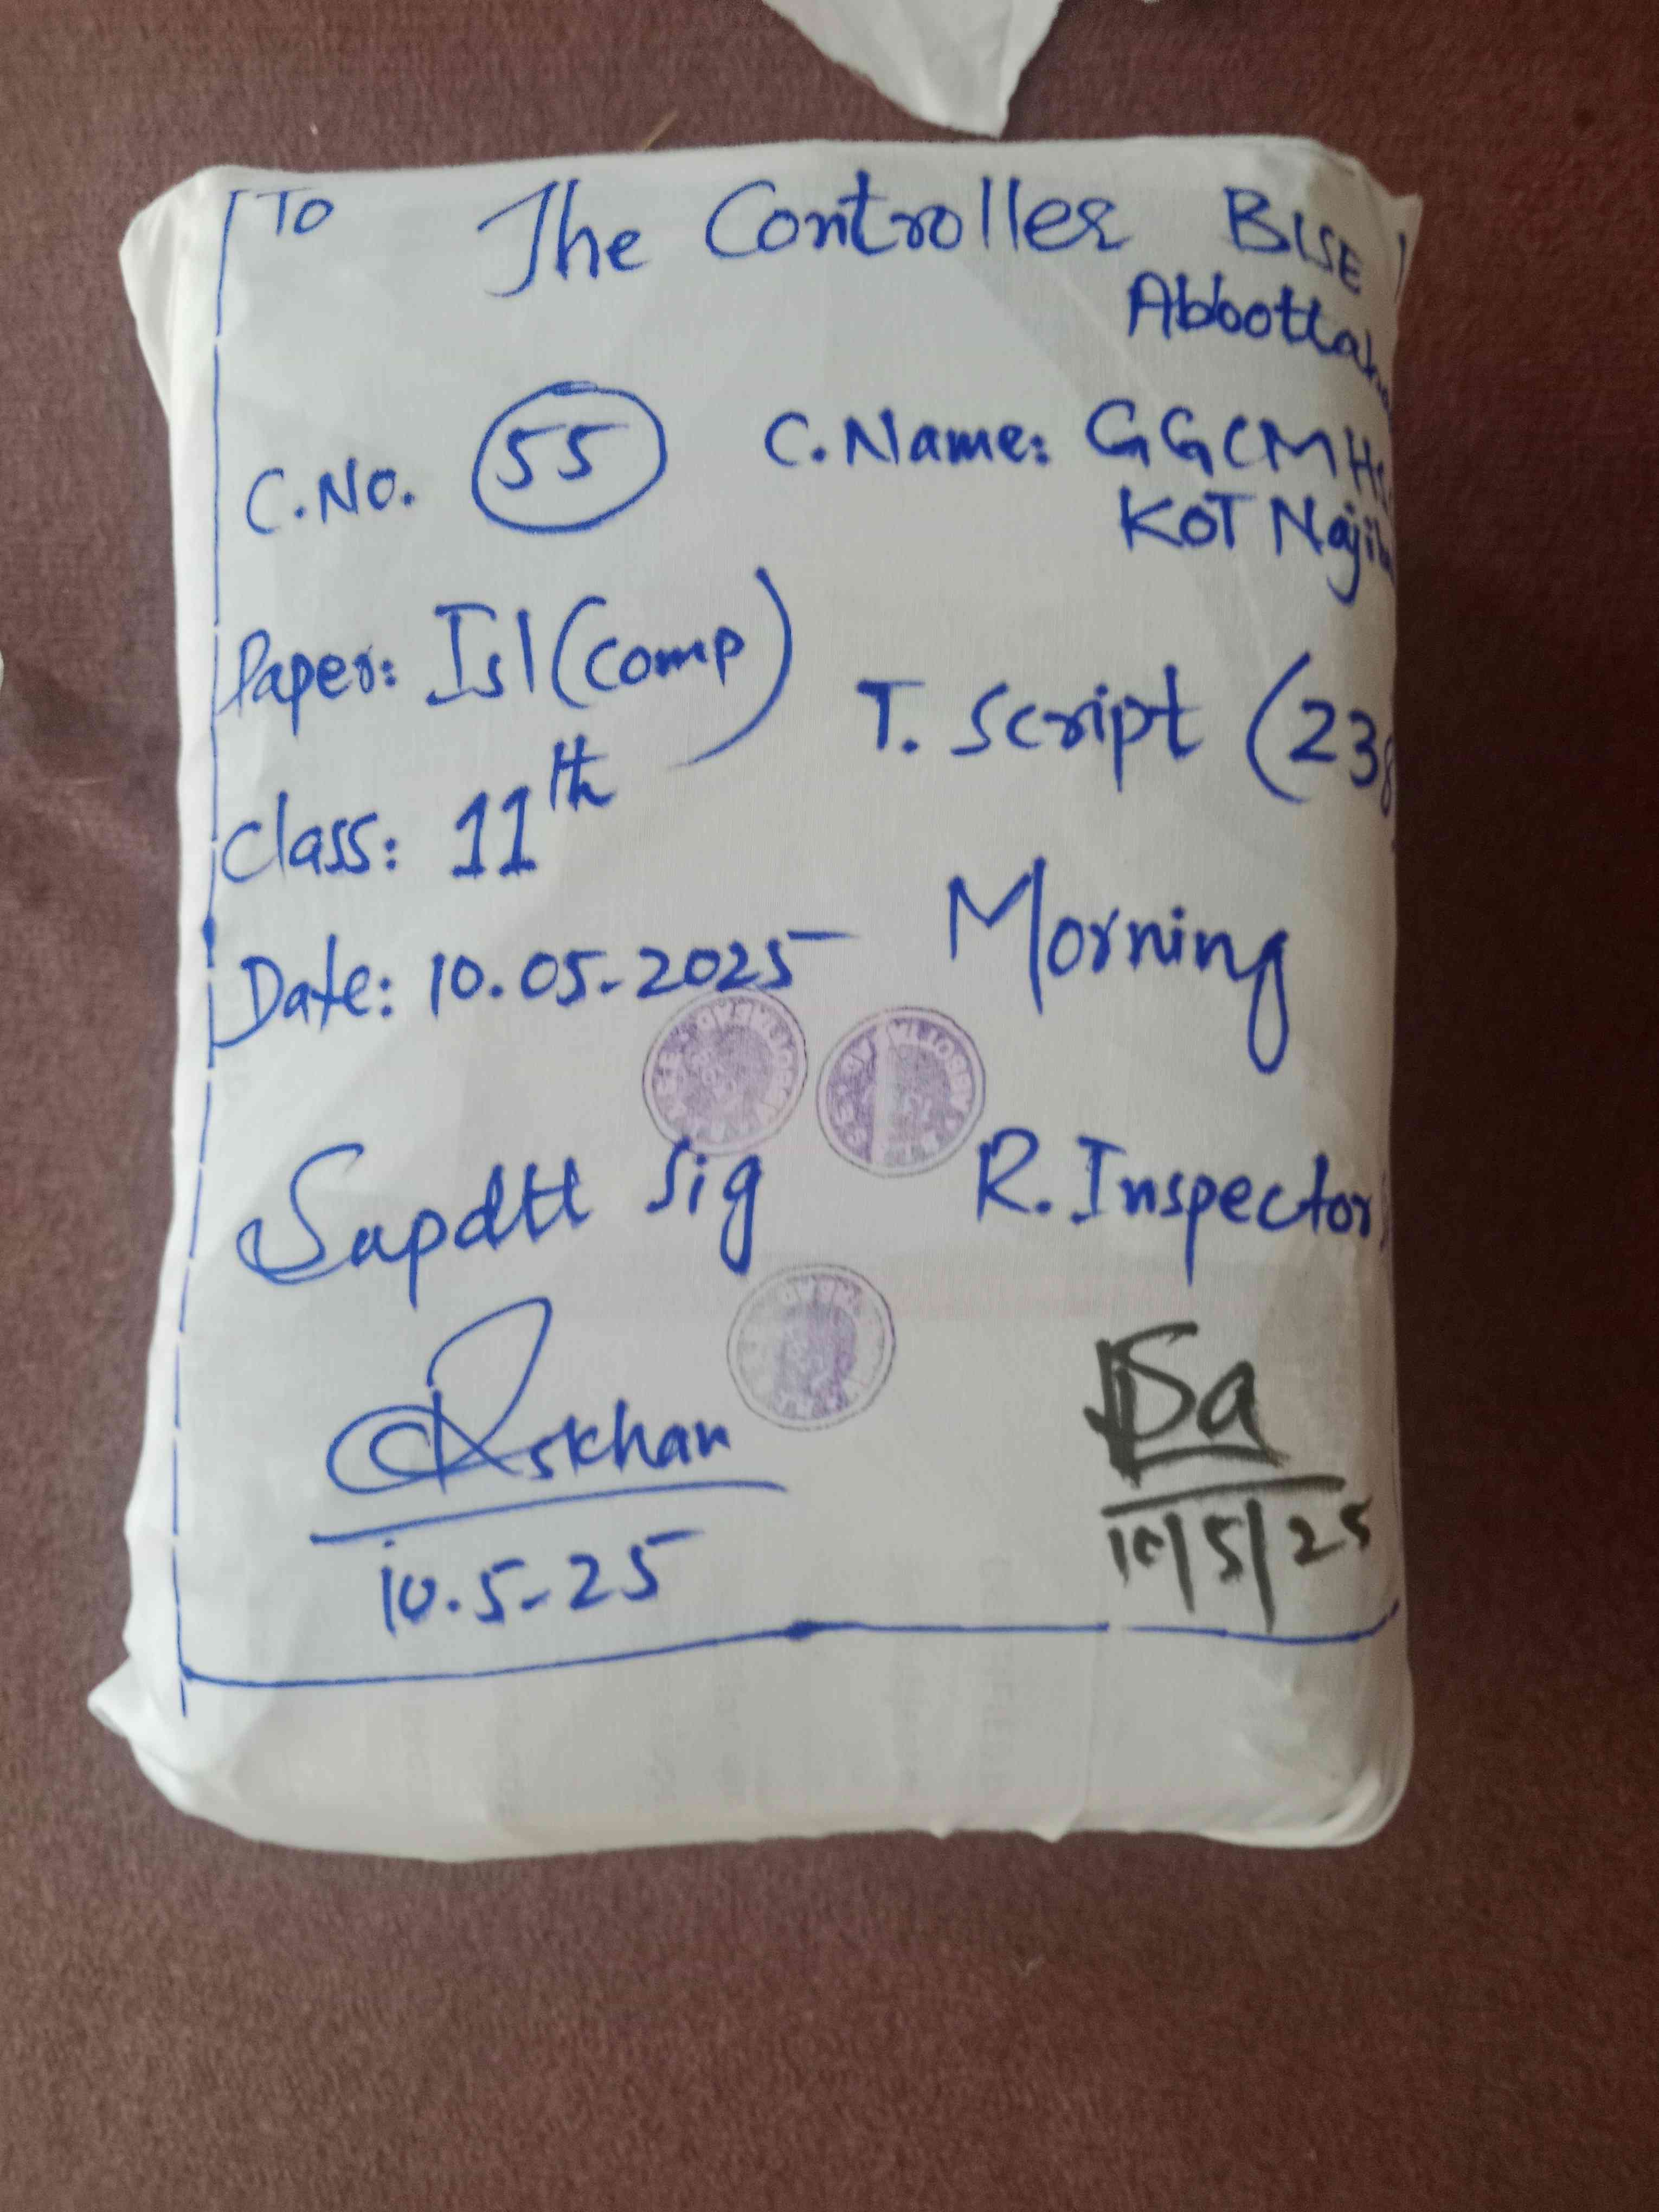 To The Controller BISE
Abbotta
C.No. 55 C.Name: GGCMH
KOT Naji
Paper: Isl (comp)
T. Script (23
Class: 11th
Date: 10.05.2025 Morning
Supdtt Sig R. Inspector
skhan
10.5-25
10/5/25